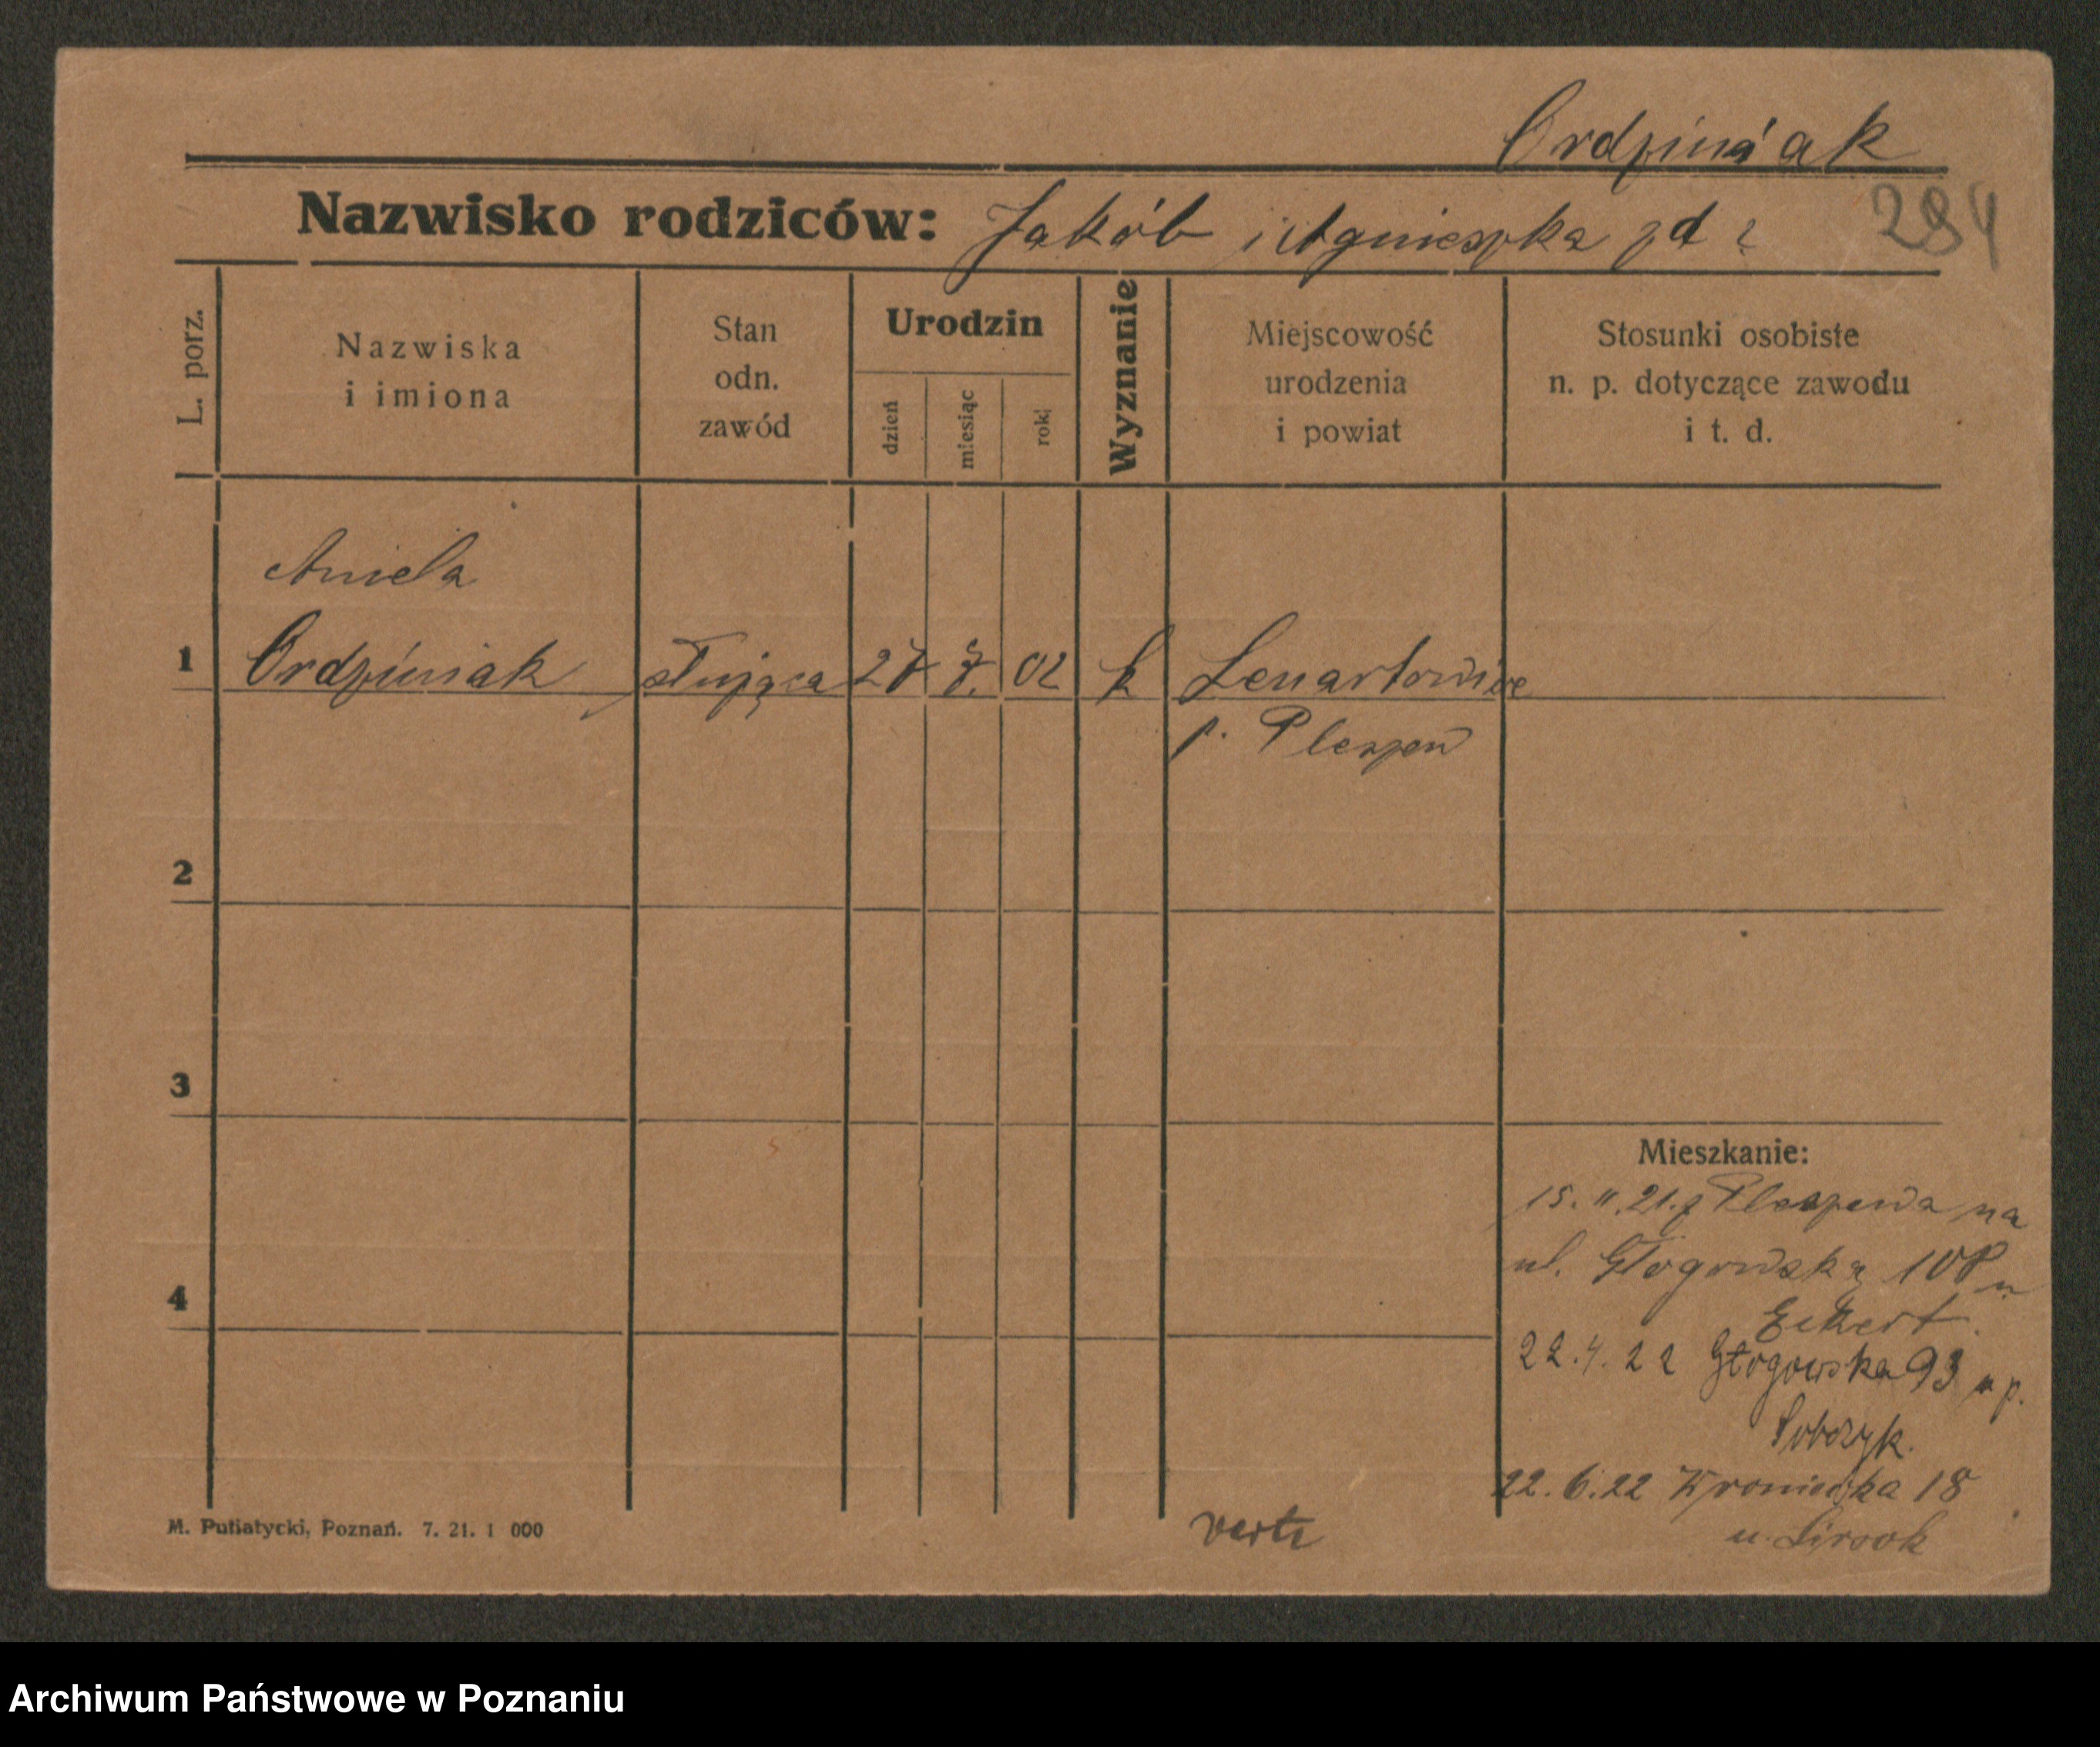 Ordziniak
Nazwisko rodziców: Jakób i Agnieszka zd ?
284
L. porz.
Nazwiska
i imiona
Stan
odn.
zawód
Urodzin
dzień
miesiąc
rok
Wyznanie
Miejscowość
urodzenia
i powiat
Stosunki osobiste
n. p. dotyczące zawodu
i t. d.
Aniela
1 Ordziniak służąca 27 7. 02 k Lenartowice
p. Pleszew
2
3
Mieszkanie:
15. 11. 21. z Pleszewa na
ul. Głogowską 108 u
4
Eckert.
22. 4. 22 Głogowska 93 u p.
Sobczyk.
22. 6. 22 Wroniecka 18
u.
verte
M. Putiatycki, Poznań. 7. 21. 1 000
Archiwum Państwowe w Poznaniu